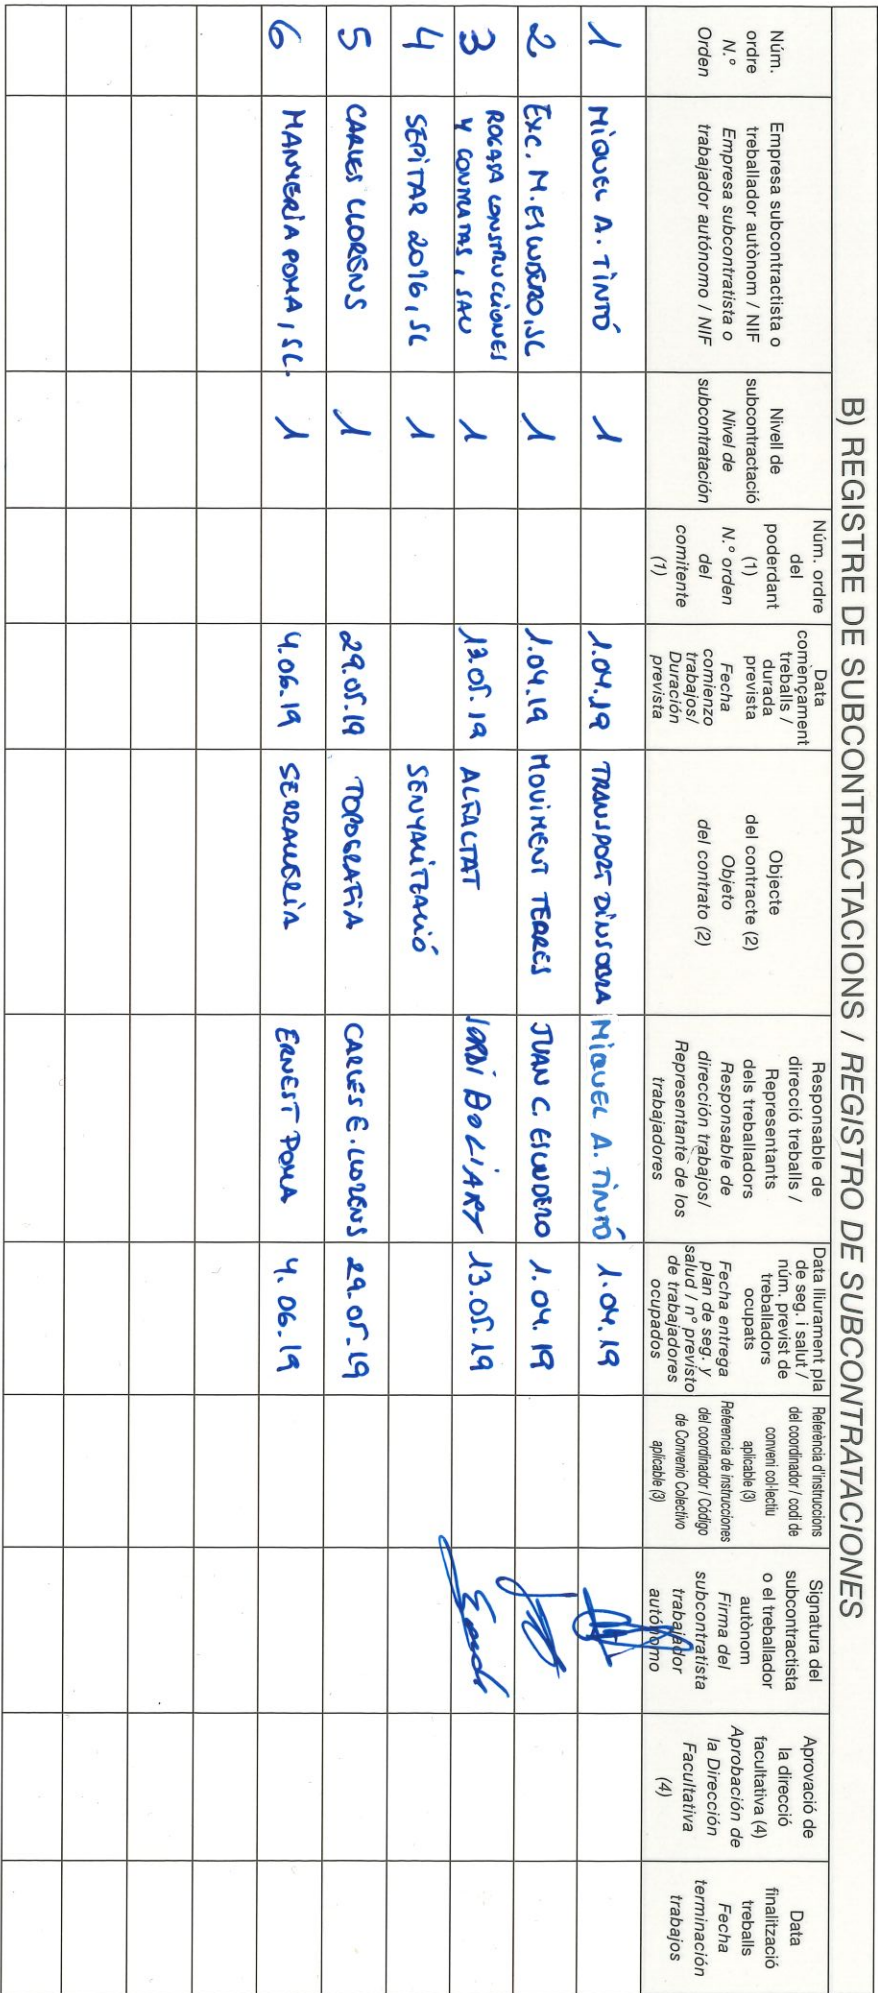 B) REGISTRE DE SUBCONTRACTACIONS / REGISTRO DE SUBCONTRATACIONES
Núm.
ordre
N.º
Orden
Empresa subcontractista o
treballador autònom / NIF
Empresa subcontratista o
trabajador autónomo / NIF
Nivell de
subcontractació
Nivel de
subcontratación
Núm. ordre
del
poderdant
(1)
N.º orden
del
comitente
(1)
Data
començament
treballs /
durada
prevista
Fecha
comienzo
trabajos/
Duración
prevista
Objecte
del contracte (2)
Objeto
del contrato (2)
Responsable de
direcció treballs /
Representants
dels treballadors
Responsable de
dirección trabajos/
Representante de los
trabajadores
Data lliurament pla
de seg. i salut /
núm. previst de
treballadors
ocupats
Fecha entrega
plan de seg. y
salud / nº previsto
de trabajadores
ocupados
Referència d'instruccions
del coordinador / codi de
conveni col·lectiu
aplicable (3)
Referencia de instrucciones
del coordinador / Código
de Convenio Colectivo
aplicable (3)
Signatura del
subcontractista
o el treballador
autònom
Firma del
subcontratista
trabajador
autónomo
Aprovació de
la direcció
facultativa (4)
Aprobación de
la Dirección
Facultativa
(4)
Data
finalització
treballs
Fecha
terminación
trabajos
1 MIQUEL A. TINTÓ 1 1.04.19 TRANSPORT DINSOBRA MIQUEL A. TINTÓ 1.04.19
2 EXC. M. ESCUDERO, SC 1 1.04.19 MOVIMENT TERRES JUAN C. ESCUDERO 1.04.19
3 ROGASA CONSTRUCCIONES
Y CONTRATAS, SAU 1 13.05.19 ASFALTAT JORDI BOLIART 13.05.19
4 SEPITAR 2016, SL 1 SENYALITZACIÓ
5 CARLES LLORENS 1 29.05.19 TOPOGRAFIA CARLES E. LLORENS 29.05.19
6 MANYERIA POMA, SL. 1 4.06.19 SERRALLERIA ERNEST POMA 4.06.19